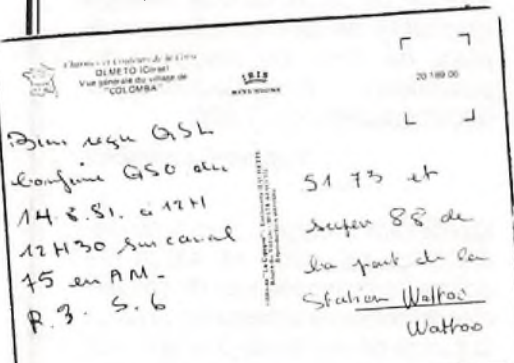 Charmes et Couleurs de la Corse
OLMETO (Corse)
Vue générale du village de
"COLOMBA"
IRIS
20 189 06
Bien reçu QSL
Confirme QSO du
14.8.81. à 12H
12H30 sur canal
15 en AM-
R.3. S.6
51 73 et
super 88 de
la part de la
Station Wattoo
Wattoo